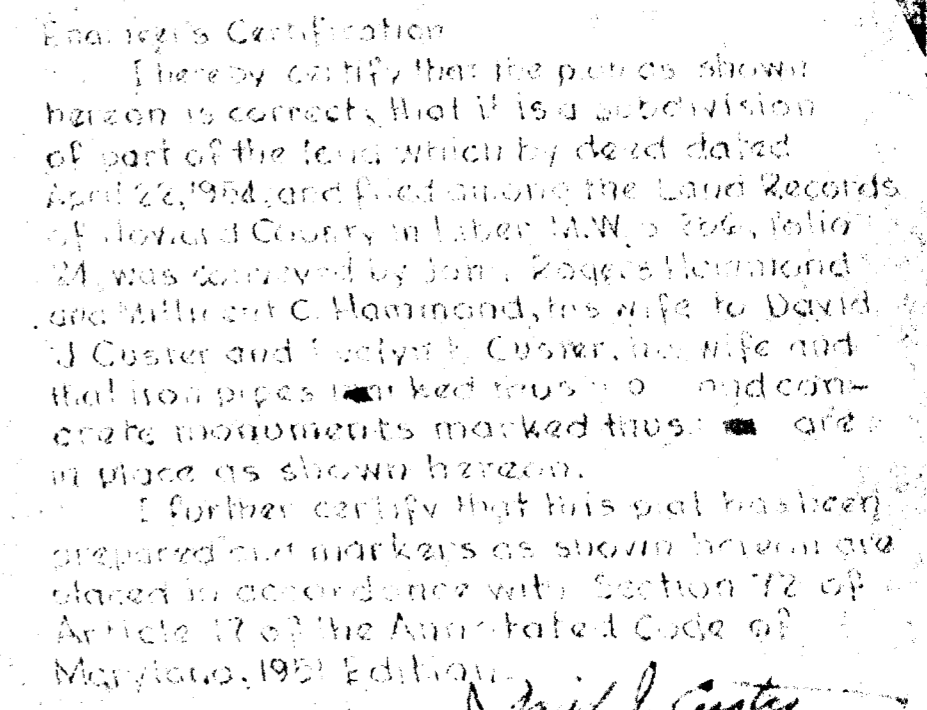 Engineer's Certification
I hereby certify that the plan as shown
hereon is correct, that it is a subdivision
of part of the land which by deed dated
April 22, 1954, and filed among the Land Records
of Howard County in Liber M.W.B. folio
was conveyed by John Rogers Hammond
and Millicent C. Hammond, his wife to David
J Custer and Evelyn Custer, his wife and
that iron pipes marked thus o and con-
crete monuments marked thus: ■ are
in place as shown hereon.
I further certify that this plat has been
prepared and markers as shown hereon are
placed in accordance with Section 72 of
Article 17 of the Annotated Code of
Maryland, 1951 Edition.
David J Custer